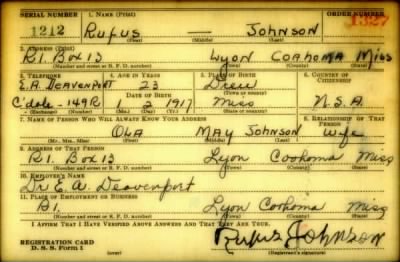 SERIAL NUMBER 1. NAME (Print) ORDER NUMBER
1212 RUFUS — JOHNSON 1327
(First) (Middle) (Last)
2. ADDRESS (Print)
R1. BOX 13 LYON COAHOMA MISS
(Number and street or R. F. D. number) (Town) (County) (State)
3. TELEPHONE 4. AGE IN YEARS 5. PLACE OF BIRTH 6. COUNTRY OF CITIZENSHIP
E.A. DEAVENPORT 23 Drew
DATE OF BIRTH (Town or county)
C'dale - 149R 1 2 1917 Miss U.S.A.
(Exchange) (Number) (Mo.) (Day) (Yr.) (State or country)
7. NAME OF PERSON WHO WILL ALWAYS KNOW YOUR ADDRESS 8. RELATIONSHIP OF THAT PERSON
OLA MAY JOHNSON wife
(Mr., Mrs., Miss) (First) (Middle) (Last)
9. ADDRESS OF THAT PERSON
R1. Box 13 Lyon Coahoma Miss
(Number and street or R. F. D. number) (Town) (County) (State)
10. EMPLOYER'S NAME
Dr E. A. Deavenport
11. PLACE OF EMPLOYMENT OR BUSINESS
R1. Lyon Coahoma Miss
(Number and street or R. F. D. number) (Town) (County) (State)
I AFFIRM THAT I HAVE VERIFIED ABOVE ANSWERS AND THAT THEY ARE TRUE.
REGISTRATION CARD Rufus Johnson
D. S. S. Form 1 (over) (Registrant's signature)